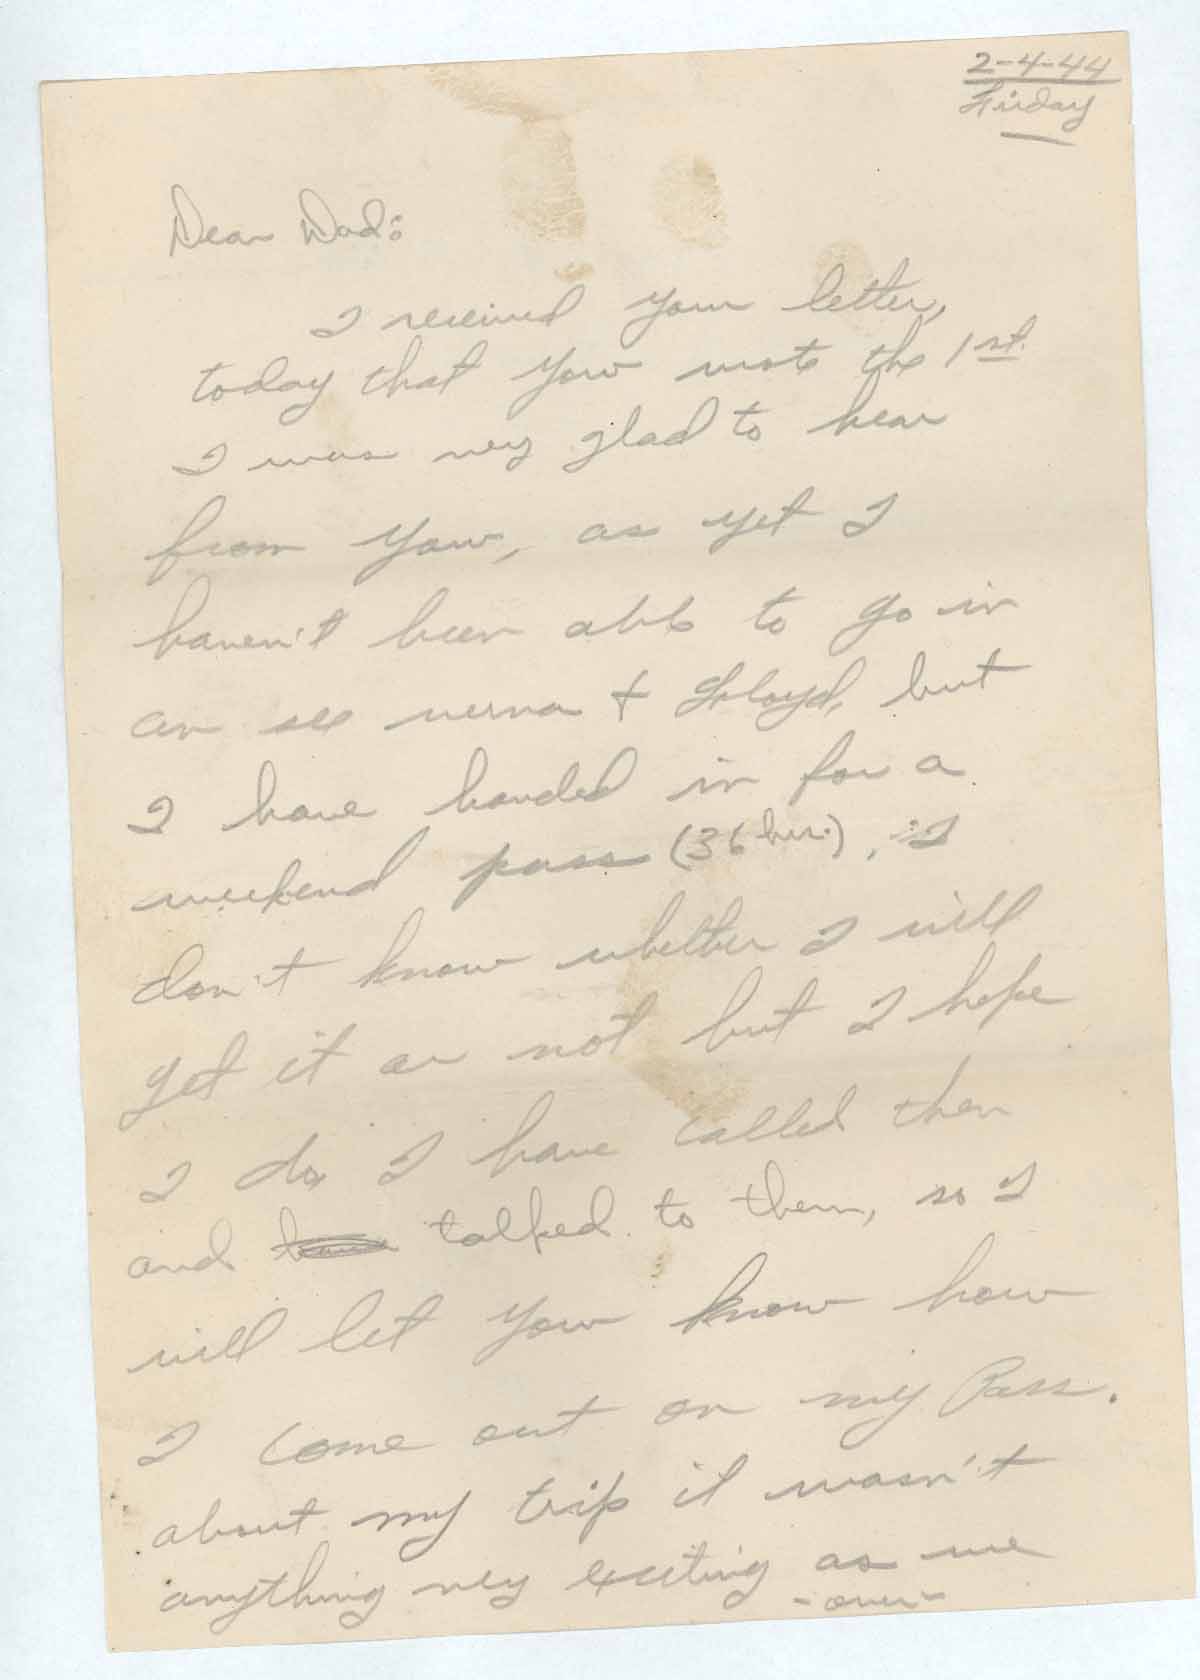 2-4-44
Friday
Dear Dad:
I received your letter,
today that you wrote the 1st.
I was very glad to hear
from you, as yet I
haven't been able to go in
an see verna + Floyd, but
I have handed in for a
weekend pass (36 hrs.), I
don't know whether I will
get it or not but I hope
I do, I have called them
and talked to them, so I
will let you know how
I come out on my Pass.
about my trip it wasn't
anything very exciting as we
-over-